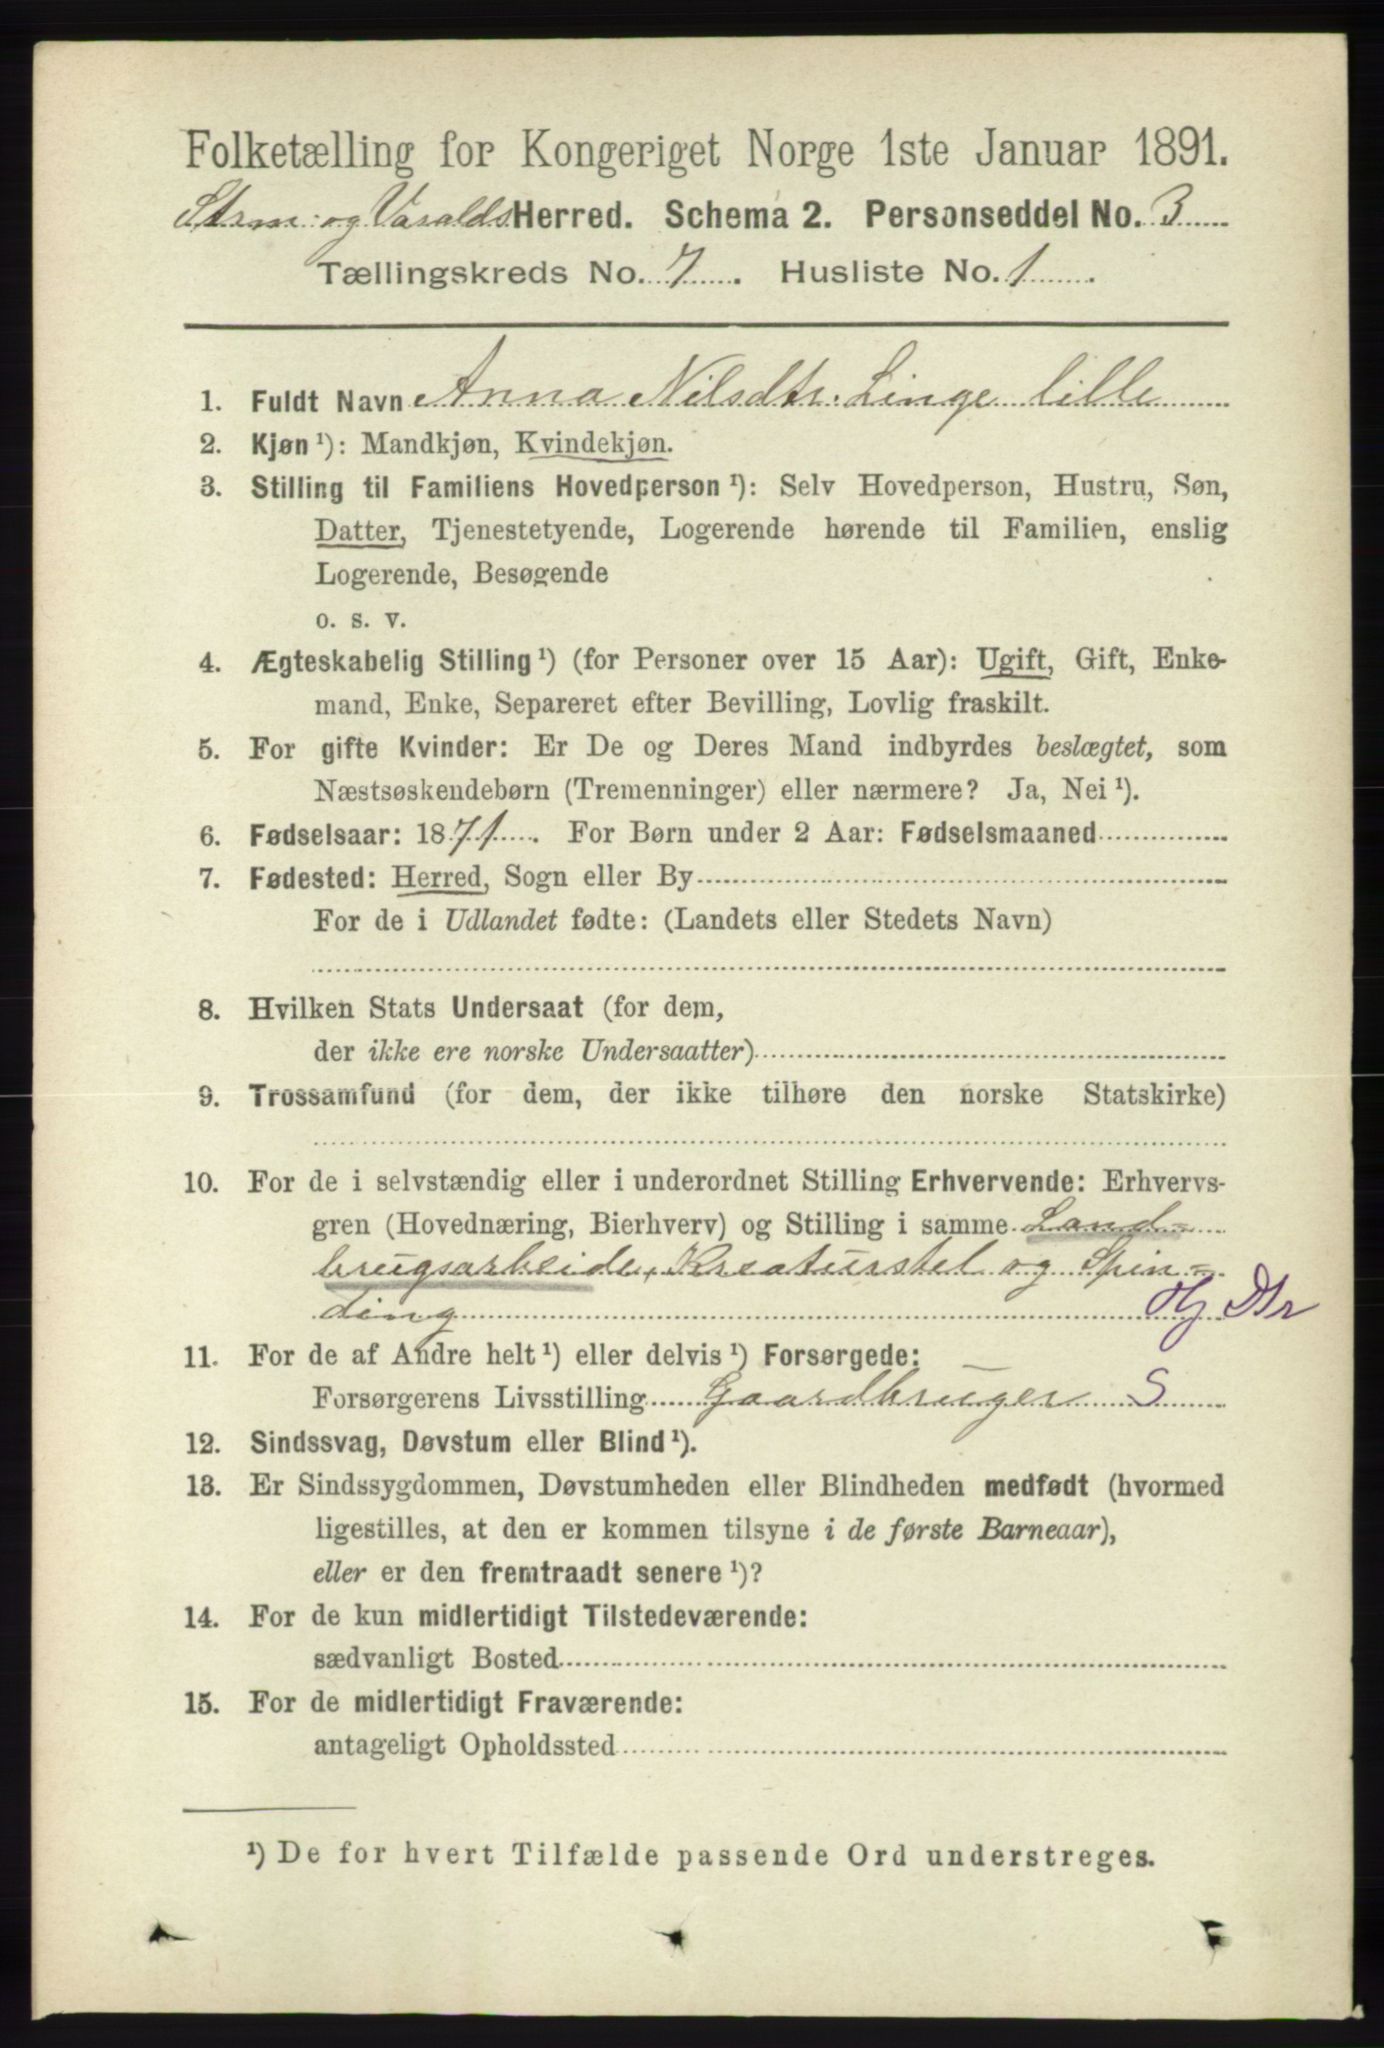 Folketælling for Kongeriget Norge 1ste Januar 1891.
Strm: og Varalds Herred. Schema 2. Personseddel No. 3
Tællingskreds No. 7. Husliste No. 1.
1. Fuldt Navn Anna Nilsdtr. Linge lille
2. Kjøn ¹): Mandkjøn, Kvindekjøn.
3. Stilling til Familiens Hovedperson ¹): Selv Hovedperson, Hustru, Søn,
Datter, Tjenestetyende, Logerende hørende til Familien, enslig
Logerende, Besøgende
o. s. v.
4. Ægteskabelig Stilling ¹) (for Personer over 15 Aar): Ugift, Gift, Enke-
mand, Enke, Separeret efter Bevilling, Lovlig fraskilt.
5. For gifte Kvinder: Er De og Deres Mand indbyrdes beslægtet, som
Næstsøskendebørn (Tremenninger) eller nærmere? Ja, Nei ¹).
6. Fødselsaar: 1871. For Børn under 2 Aar: Fødselsmaaned
7. Fødested: Herred, Sogn eller By
For de i Udlandet fødte: (Landets eller Stedets Navn)
8. Hvilken Stats Undersaat (for dem,
der ikke ere norske Undersaatter)
9. Trossamfund (for dem, der ikke tilhøre den norske Statskirke)
10. For de i selvstændig eller i underordnet Stilling Erhvervende: Erhvervs-
gren (Hovednæring, Bierhverv) og Stilling i samme Land=
brugsarbeide, Kreaturstel og Spin=
ding Hj Dtr
11. For de af Andre helt ¹) eller delvis ¹) Forsørgede:
Forsørgerens Livsstilling Gaardbruger S
12. Sindssvag, Døvstum eller Blind ¹).
13. Er Sindssygdommen, Døvstumheden eller Blindheden medfødt (hvormed
ligestilles, at den er kommen tilsyne i de første Barneaar),
eller er den fremtraadt senere ¹)?
14. For de kun midlertidigt Tilstedeværende:
sædvanligt Bosted
15. For de midlertidigt Fraværende:
antageligt Opholdssted
¹) De for hvert Tilfælde passende Ord understreges.